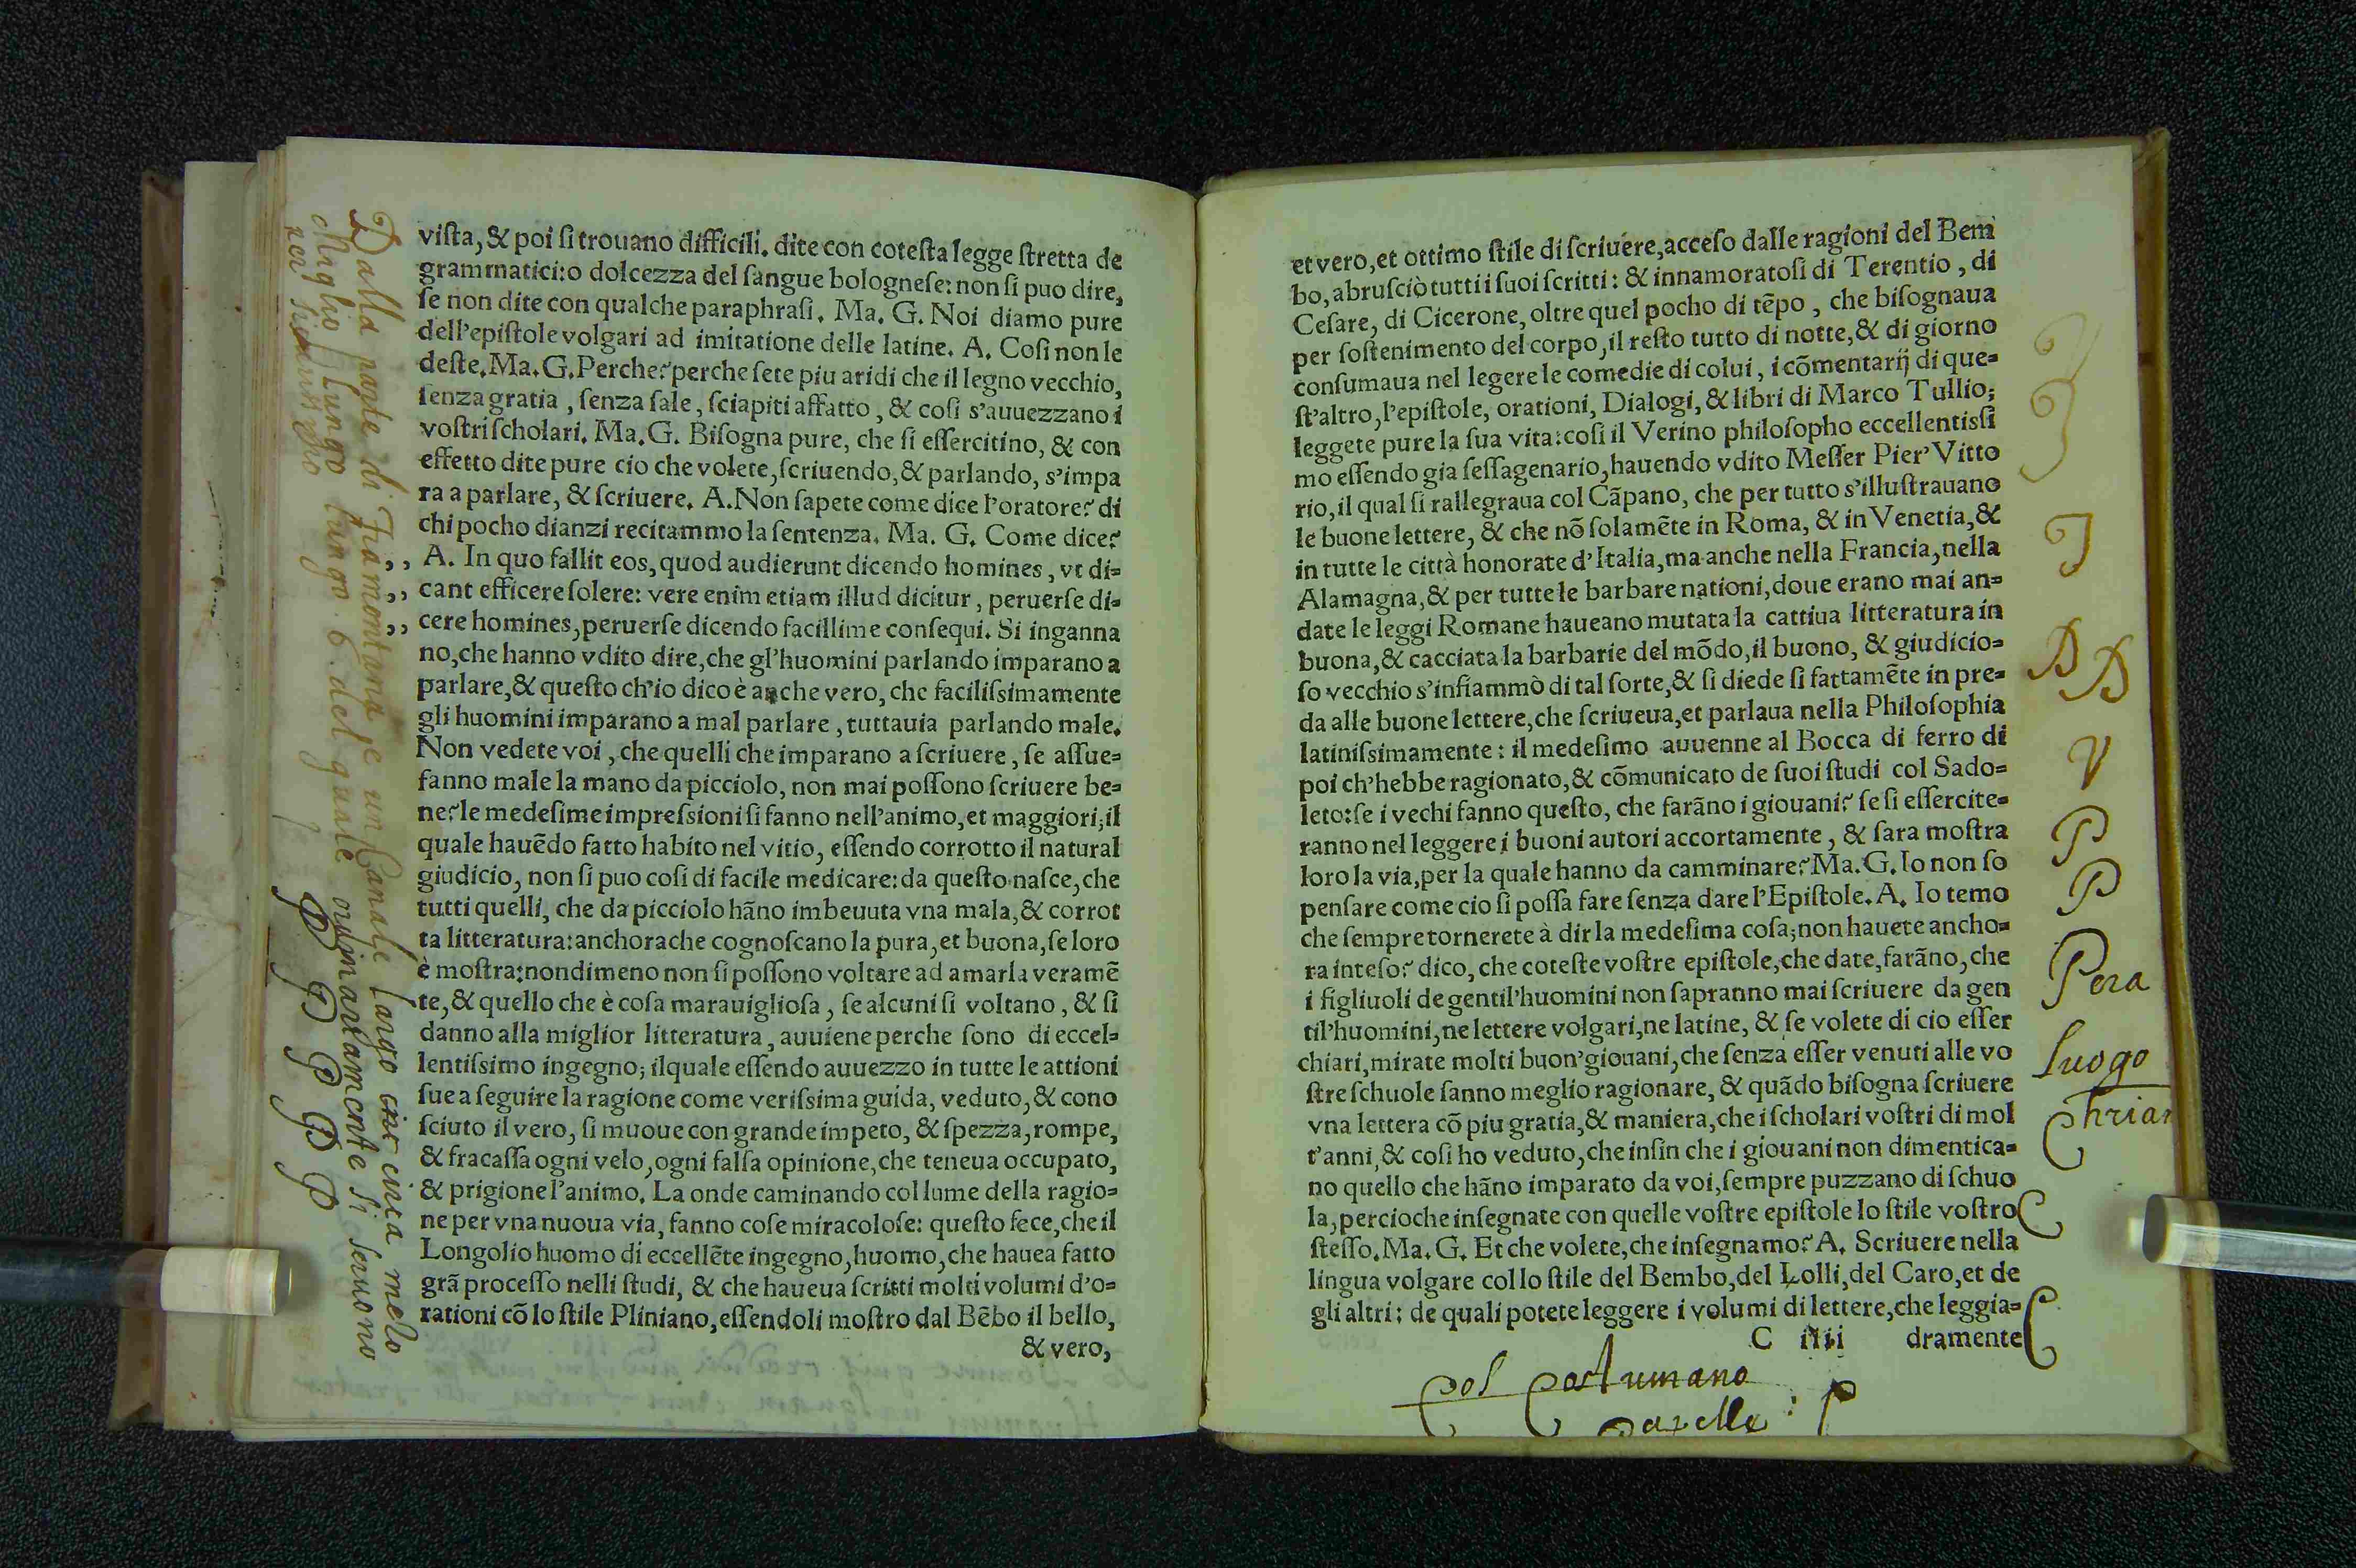 vista, & poi si trouano difficili. dite con cotesta legge stretta de
grammatici: o dolcezza del sangue bolognese: non si puo dire,
se non dite con qualche paraphrasi. Ma. G. Noi diamo pure
dell'epistole volgari ad imitatione delle latine. A. Cosi non le
deste. Ma. G. Perche? perche sete piu aridi che il legno vecchio,
senza gratia, senza sale, sciapiti affatto, & cosi s'auuezzano i
vostri scholari. Ma. G. Bisogna pure, che si essercitino, & con
effetto dite pure cio che volete, scriuendo, & parlando, s'impa
ra a parlare, & scriuere. A. Non sapete come dice l'oratore? di
chi pocho dianzi recitammo la sentenza. Ma. G. Come dice?
,, A. In quo fallit eos, quod audierunt dicendo homines, vt di=
,, cant efficere solere: vere enim etiam illud dicitur, peruerse di=
,, cere homines, peruerse dicendo facillime consequi. Si inganna
no, che hanno vdito dire, che gl'huomini parlando imparano a
parlare, & questo ch'io dico è anche vero, che facilissimamente
gli huomini imparano a mal parlare, tuttauia parlando male.
Non vedete voi, che quelli che imparano a scriuere, se assue=
fanno male la mano da picciolo, non mai possono scriuere be=
ne? le medesime impressioni si fanno nell'animo, et maggiori; il
quale hauēdo fatto habito nel vitio, essendo corrotto il natural
giudicio, non si puo cosi di facile medicare: da questo nasce, che
tutti quelli, che da picciolo hāno imbeuuta vna mala, & corrot
ta litteratura: anchora che cognoscano la pura, et buona, se loro
è mostra: nondimeno non si possono voltare ad amarla veramē
te, & quello che è cosa marauigliosa, se alcuni si voltano, & si
danno alla miglior litteratura, auuiene perche sono di eccel=
lentissimo ingegno; ilquale essendo auuezzo in tutte le attioni
sue a seguire la ragione come verissima guida, veduto, & cono
sciuto il vero, si muoue con grande impeto, & spezza, rompe,
& fracassa ogni velo, ogni falsa opinione, che teneua occupato,
& prigione l'animo. La onde caminando col lume della ragio=
ne per vna nuoua via, fanno cose miracolose: questo fece, che il
Longolio huomo di eccellēte ingegno, huomo, che hauea fatto
grā processo nelli studi, & che haueua scritti molti volumi d'o=
rationi cō lo stile Pliniano, essendoli mostro dal Bēbo il bello,
& vero,
Dalla parte di Tramontana e un Canale largo circa melo
Miglio lungo lungo. 6. del quale ordinariamente si seruono
P P P P P
et vero, et ottimo stile di scriuere, acceso dalle ragioni del Bem
bo, abrusciò tutti i suoi scritti: & innamoratosi di Terentio, di
Cesare, di Cicerone, oltre quel pocho di tēpo, che bisognaua
per sostenimento del corpo, il resto tutto di notte, & di giorno
consumaua nel legere le comedie di colui, i cōmentarij di que=
st'altro, l'epistole, orationi, Dialogi, & libri di Marco Tullio;
leggete pure la sua vita: cosi il Verino philosopho eccellentissi
mo essendo gia sessagenario, hauendo vdito Messer Pier' Vitto
rio, il qual si rallegraua col Cāpano, che per tutto s'illustrauano
le buone lettere, & che nō solamēte in Roma, & in Venetia, &
in tutte le città honorate d'Italia, ma anche nella Francia, nella
Alamagna, & per tutte le barbare nationi, doue erano mai an=
date le leggi Romane haueano mutata la cattiua litteratura in
buona, & cacciata la barbarie del mōdo, il buono, & giudicio=
so vecchio s'infiammò di tal sorte, & si diede si fattamēte in pre=
da alle buone lettere, che scriueua, et parlaua nella Philosophia
latinissimamente: il medesimo auuenne al Bocca di ferro di
poi ch'hebbe ragionato, & cōmunicato de suoi studi col Sado=
leto: se i vechi fanno questo, che farāno i giouani? se si essercite=
ranno nel leggere i buoni autori accortamente, & sara mostra
loro la via, per la quale hanno da camminare? Ma. G. Io non so
pensare come cio si possa fare senza dare l'Epistole. A. Io temo
che sempre tornerete à dir la medesima cosa; non hauete ancho=
ra inteso? dico, che coteste vostre epistole, che date, farāno, che
i figliuoli de gentil'huomini non sapranno mai scriuere da gen
til'huomini, ne lettere volgari, ne latine, & se volete di cio esser
chiari, mirate molti buon'giouani, che senza esser venuti alle vo
stre schuole sanno meglio ragionare, & quādo bisogna scriuere
vna lettera cō piu gratia, & maniera, che i scholari vostri di mol
t'anni, & cosi ho veduto, che insin che i giouani non dimentica=
no quello che hāno imparato da voi, sempre puzzano di schuo
la, percioche insegnate con quelle vostre epistole lo stile vostro
stesso. Ma. G. Et che volete, che insegnamo? A. Scriuere nella
lingua volgare col lo stile del Bembo, del Lolli, del Caro, et de
gli altri: de quali potete leggere i volumi di lettere, che leggia=
C iiii dramente
D D
V
P
P
Pera
luogo
C
C